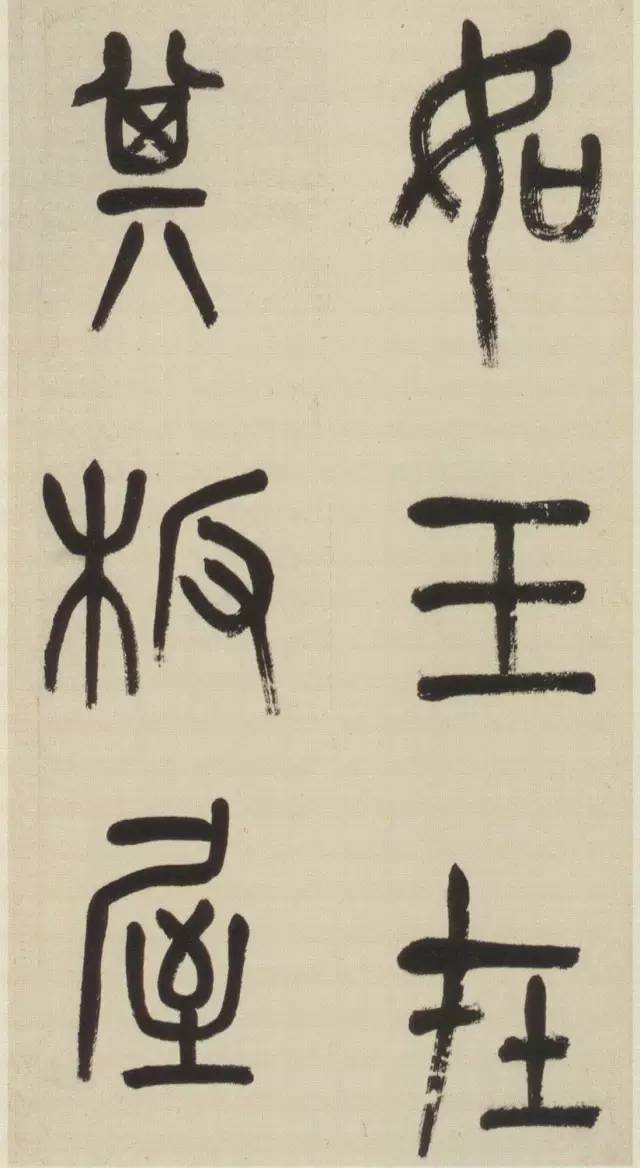 如王在
其板屋